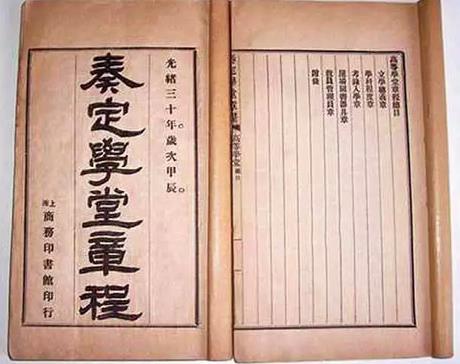 光緒三十年歲次甲辰
奏定學堂章程
上海
商務印書館印行
高等學堂章程目
立學總義章
學科程度章
考錄入學章
屋場圖書器具章
教員管理員章
奏定學堂章程
高等學堂